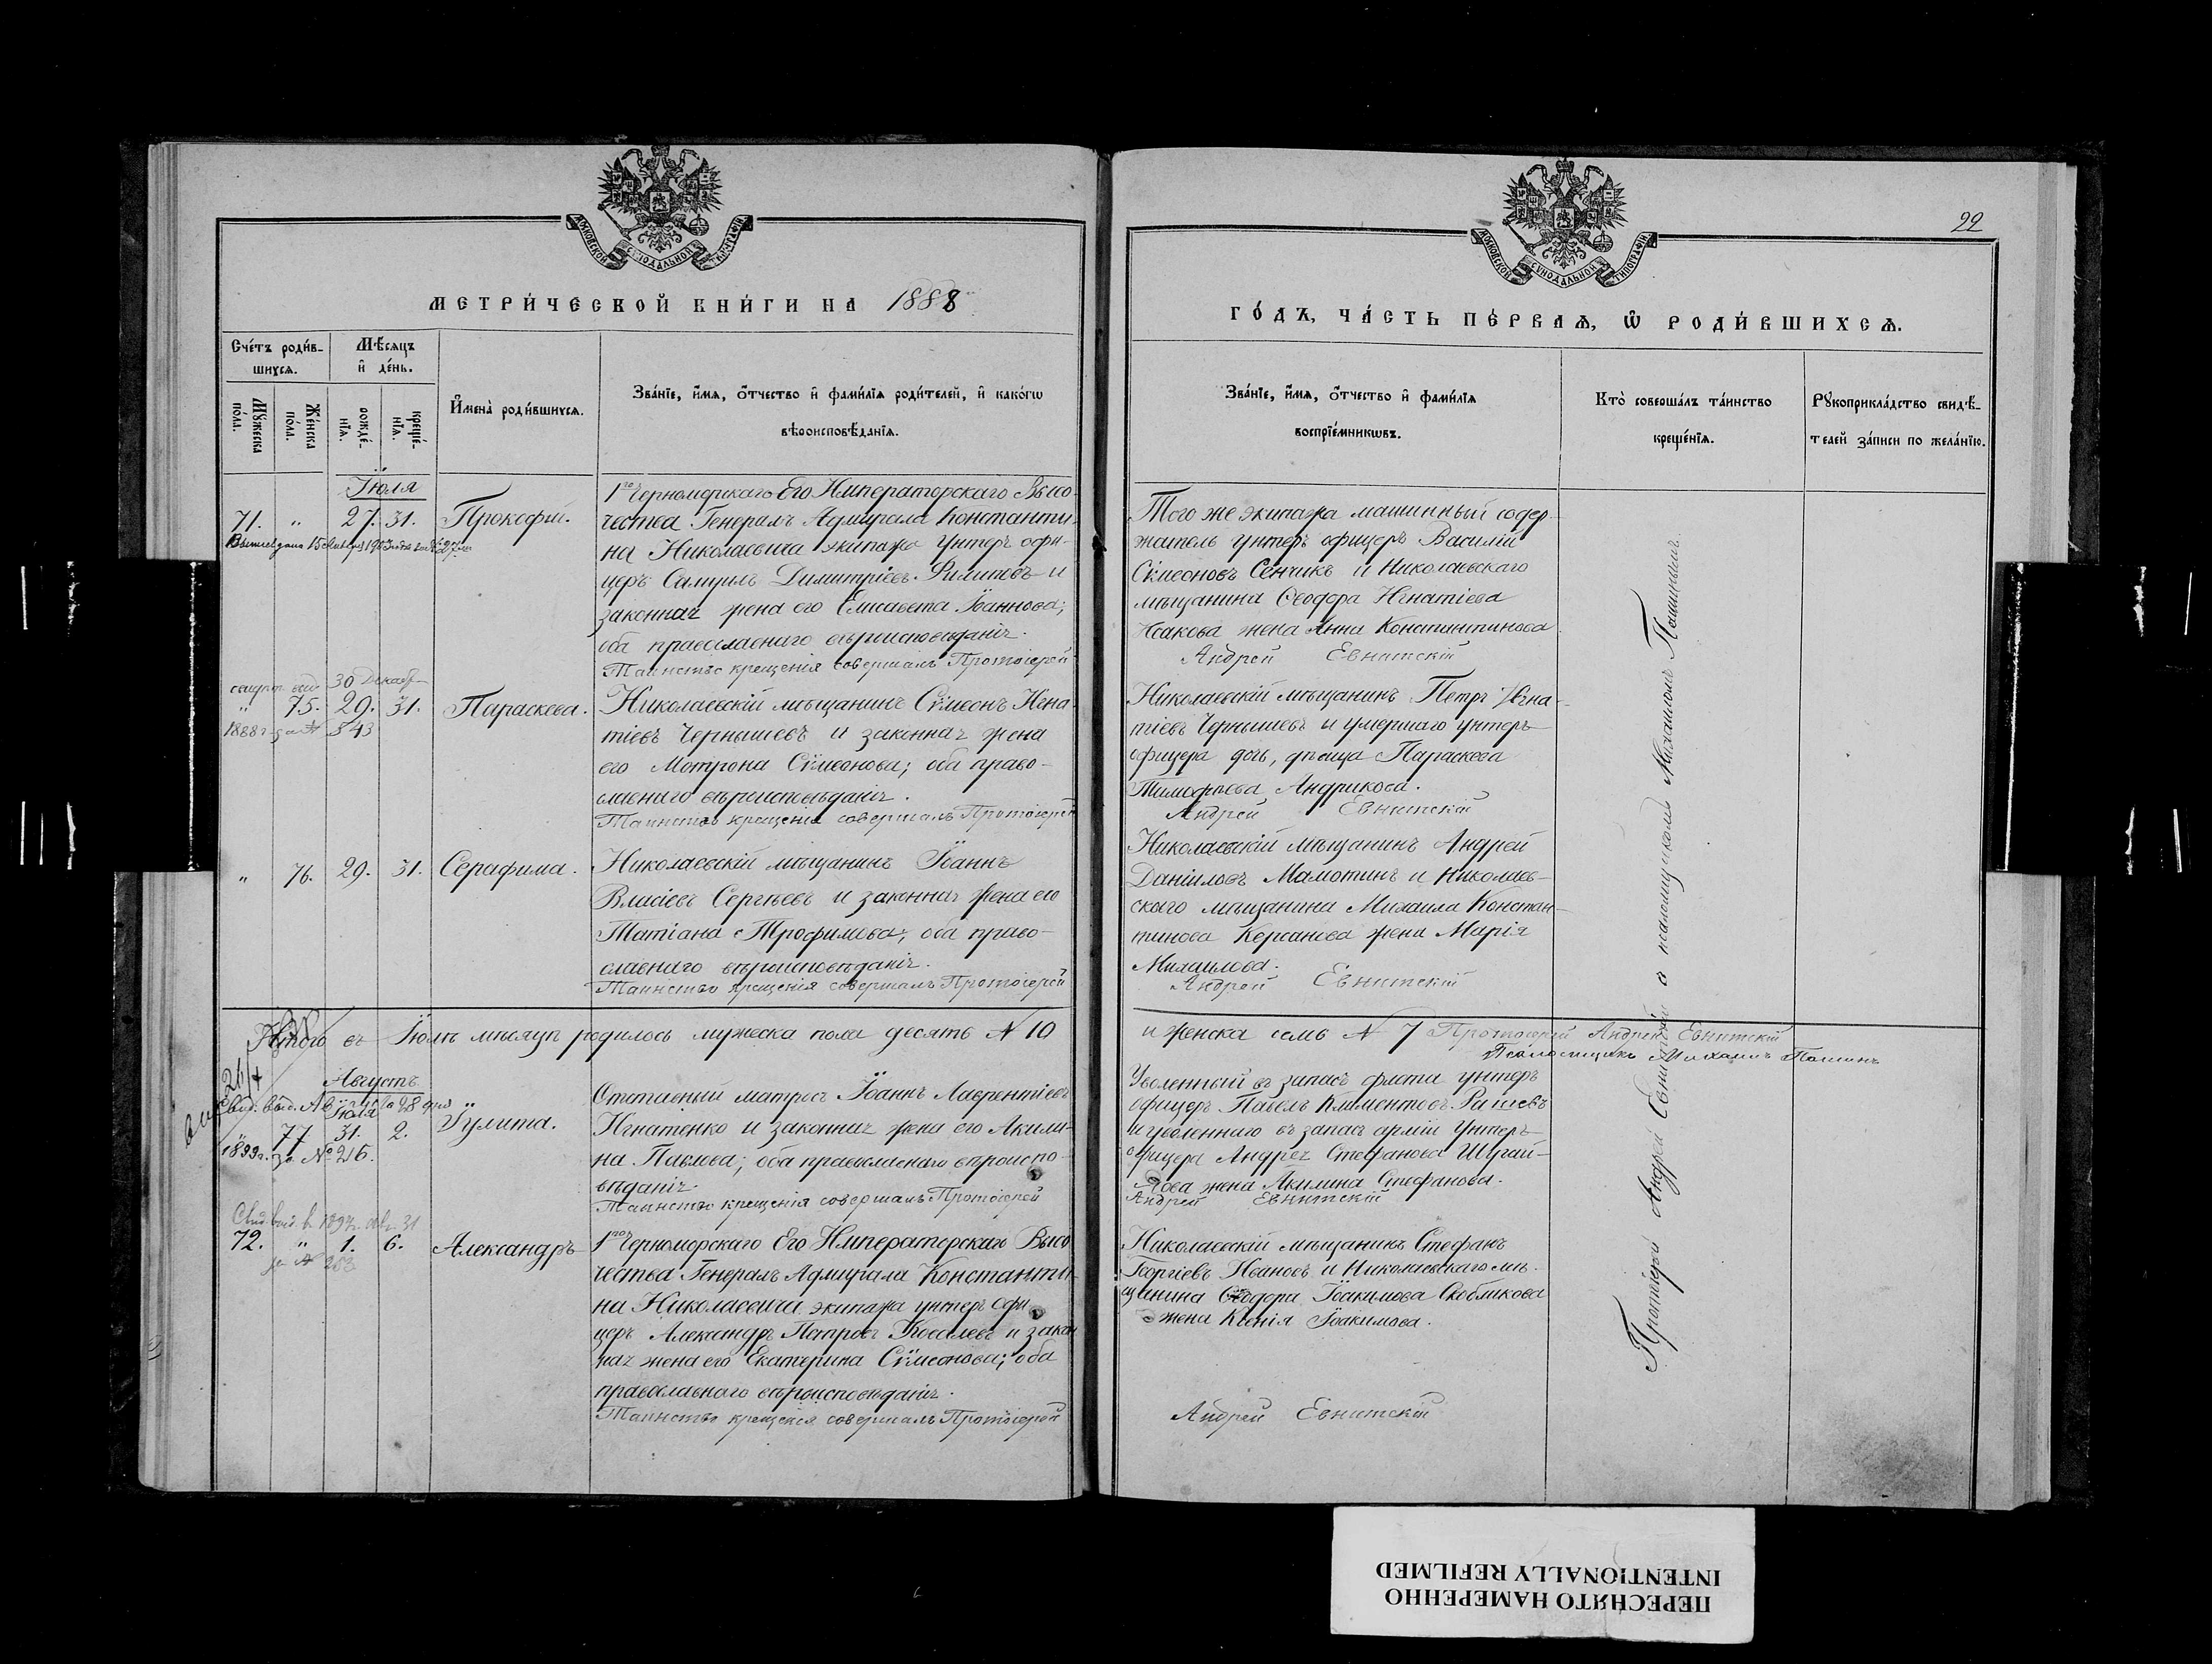 МОСКОВСКОЙ СѴНОДАЛЬНОЙ ТИПОГРАФІИ
МЕТРИ́ЧЕСКОЙ КНИ́ГИ НА 1888
Сче́тъ роди́в-
шихсѧ.
Мѣ́сѧцъ
и҆ де́нь.
Мꙋ́жеска
по́ла.
Же́нска
по́ла.
рожде́-
нїѧ.
креще́-
нїѧ.
И҆мена̀ роди́вшихсѧ.
Зва́нїе, и҆́мѧ, ѻ҆́тчество и҆ фами́лїѧ роди́телей, и҆ како́гѡ
вѣроисповѣ́данїѧ.
Іюля
71. " 27. 31. Прокофій.
1го Черноморскаго Его Императорскаго Высо-
чества Генералъ Адмирала Константи-
на Николаевича экипажа унтеръ офи-
церъ Самуилъ Димитріевъ Филиповъ и
законная жена его Елисавета Іоаннова;
оба православнаго вѣроисповѣданія.
Таинство крещенія совершалъ Протоіерей
30 Декабр
" 75. 29. 31. Параскева.
1888 г. за № 543
Николаевскій мѣщанинъ Сѵмеонъ Игна-
тіевъ Чернышевъ и законная жена
его Матрона Сѵмеонова; оба право-
славнаго вѣроисповѣданія.
Таинство крещенія совершалъ Протоіерей
" 76. 29. 31. Серафима.
Николаевскій мѣщанинъ Іоаннъ
Власіевъ Сергѣевъ и законная жена его
Татіана Трофимова; оба право-
славнаго вѣроисповѣданія.
Таинство крещенія совершалъ Протоіерей
Итого въ Іюлѣ мѣсяцѣ родилось мужеска пола десять № 10
Августъ
Свид. выд. Августа 28 дня
Іюля
" 77 31. 2. Іулита.
1899 г. за № 216.
Отставный матросъ Іоаннъ Лаврентіевъ
Игнатенко и законная жена его Акили-
на Павлова; оба православнаго вѣроиспо-
вѣданія.
Таинство крещенія совершалъ Протоіерей
72. " 1. 6. Александръ
1го Черноморскаго Его Императорскаго Высо
чества Генералъ Адмирала Константи-
на Николаевича экипажа унтеръ офи
церъ Александръ Петровъ Коваловъ и закон
ная жена его Екатерина Сѵмеонова; оба
православнаго вѣроисповѣданія.
Таинство крещенія совершалъ Протоіерей
22
МОСКОВСКОЙ СѴНОДАЛЬНОЙ ТИПОГРАФІИ
ГО́ДЪ, ЧА́СТЬ ПЕ́РВАѦ, Ѡ҆ РОДИ́ВШИХСѦ.
Зва́нїе, и҆́мѧ, ѻ҆́тчество и҆ фами́лїѧ
воспрїе́мникѡвъ.
Кто̀ соверша́лъ та́инство
креще́нїѧ.
Рꙋкоприкла́дство свидѣ́-
телей за́писи по жела́нїю.
Того же экипажа машинный содер-
жатель унтеръ офицеръ Василій
Сѵмеоновъ Сенчикъ и Николаевскаго
мѣщанина Ѳеодора Игнатіева
Исакова жена Анна Константинова
Андрей Евнитскій
Николаевскій мѣщанинъ Петръ Игна-
тіевъ Чернышевъ и умершаго унтеръ
офицера дочь, дѣвица Параскева
Тимофѣева Андрикова.
Андрей Евнитскій
Николаевскій мѣщанинъ Андрей
Даніиловъ Мамотинъ и Николаев-
скаго мѣщанина Михаила Констан-
тинова Керсанова жена Марія
Михаилова.
Андрей Евнитскій
и женска семь № 7 Протоіерей Андрей Евнитскій
Псаломщикъ Михаилъ Пашинъ
Уволенный въ запасъ флота унтеръ
офицеръ Павелъ Климентовъ
и уволеннаго въ запасъ арміи унтеръ-
офицера Андрея Стефанова
жена Акилина Стефанова.
Андрей Евнитскій
Николаевскій мѣщанинъ Стефанъ
Георгіевъ Ивановъ и Николаевскаго мѣ-
щанина Ѳеодора Іоакимова Скобликова
жена Ксенія Іоакимова.
Андрей Евнитскій
Протоіерей Андрей Евнитскій с псаломщикомъ Михаиломъ Пашинымъ.
ПЕРЕСНЯТО НАМЕРЕННО
INTENTIONALLY REFILMED